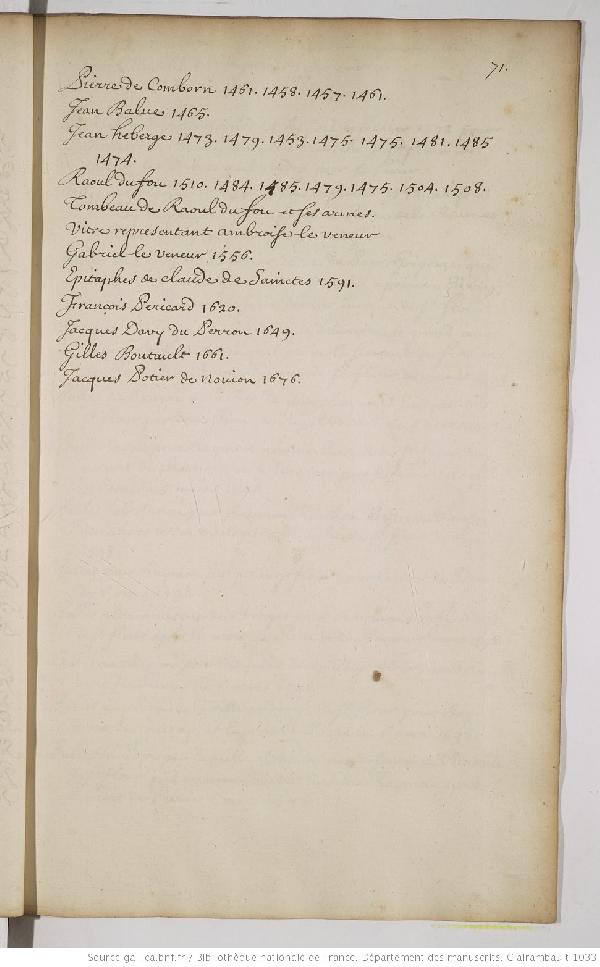 71.
Pierre de Comborn 1461. 1458. 1457. 1461.
Jean Balue 1465.
Jean heberge 1473. 1479. 1453. 1475. 1475. 1481. 1485
1474.
Raoul du fou 1510. 1484. 1485. 1479. 1475. 1504. 1508.
Tombeau de Raoul du fou et ses armes.
Vitre representant ambroise le veneur
Gabriel le veneur 1556.
Epitaphes de claude de Sainctes 1591.
François Pericard 1620.
Jacques Davy du Perron 1649.
Gilles Boutault 1661.
Jacques Potier de Novion 1676.
Source gallica.bnf.fr / Bibliothèque nationale de France. Département des manuscrits. Clairambault 1033